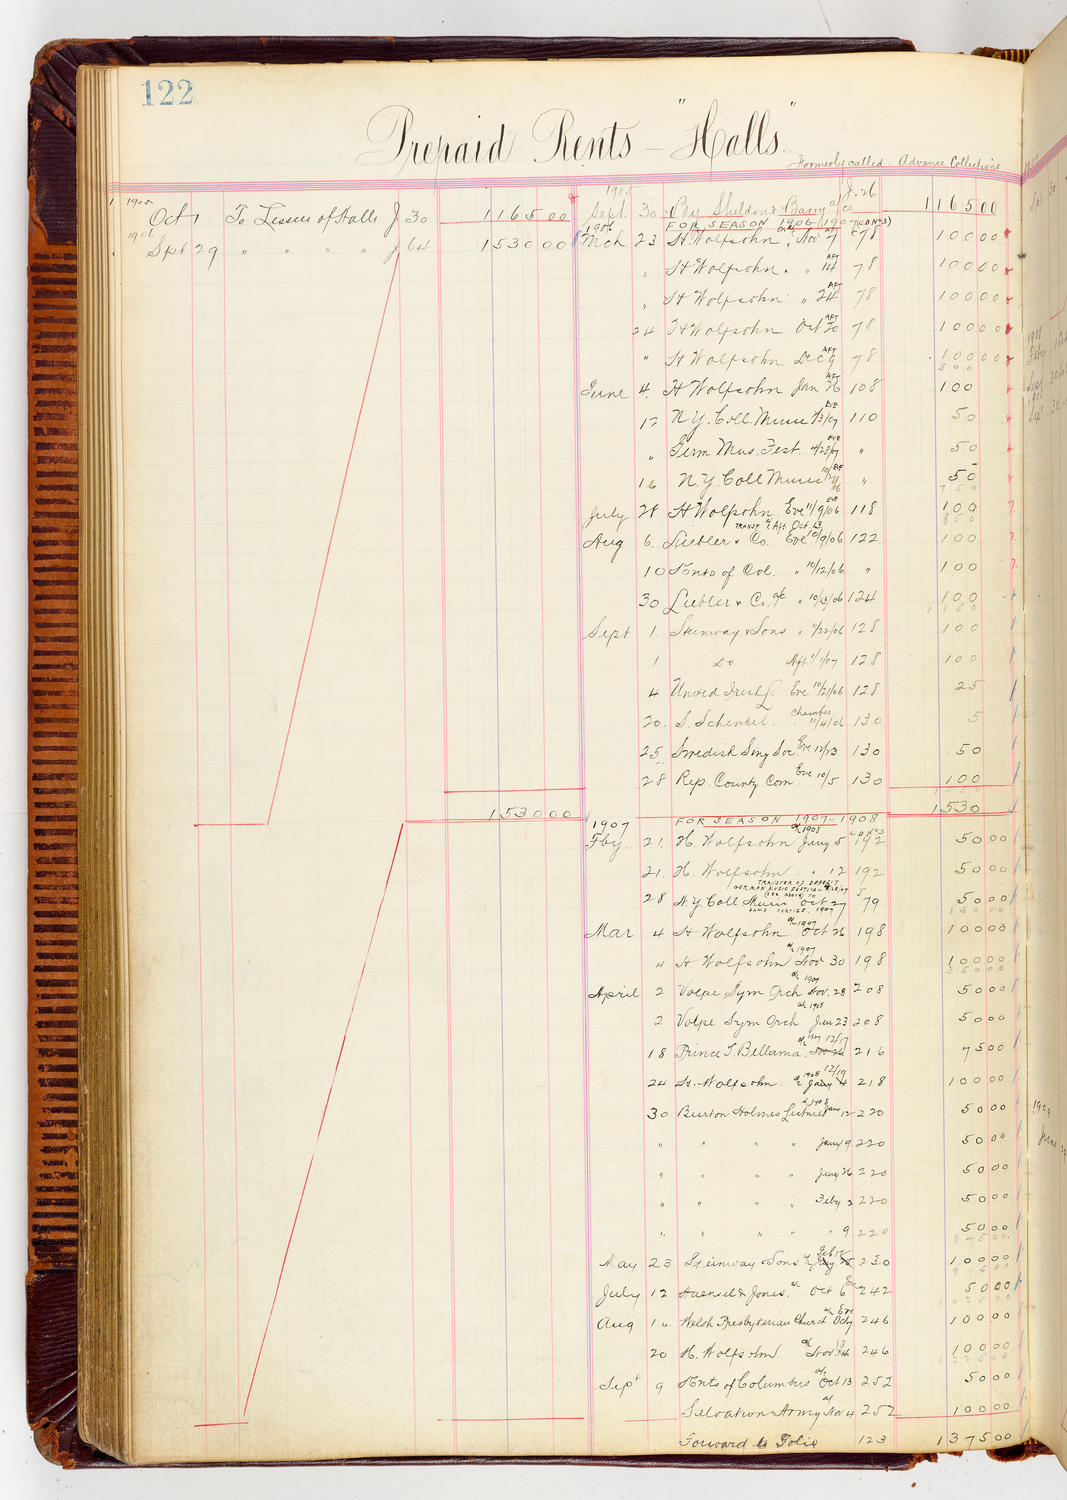 122
Prepaid Rents - "Halls"
Formerly called - Advance Collections
1905 1905 J. 26
Oct 1 To Lessees of Halls J 30 1165 00 Sept. 30 By Sheldon & Barry a/c 1165 00
FOR SEASON 1906-1907 (CD No 3)
1906 Spt 29 " " " " J 64 1530 00 1906 Mch 23 H. Wolfsohn Nov 7 AFT C 78 100 00
" H Wolfsohn " 14 AFT 78 100 00
" H Wolfsohn " 24 AFT 78 100 00
24 H Wolfsohn Oct 20 AFT 78 100 00
" H Wolfsohn Dec 9 AFT 78 100 00
500
June 4. H Wolfsohn Jan 26 AFT 108 100
12 N.Y. Coll. Music 1/3/07 EVE 110 50
" Germ Mus. Fest. 4/28/07 EVE " 50
16 N.Y. Coll Music EVE " 50
750
July 28 H Wolfsohn Eve 11/9/06 118 100
850
TRANSF a/c Aft. Oct. 13
Aug 6. Liebler & Co. Eve 10/9/06 122 100
10 Knts of Col. " 10/12/06 " 100
30 Liebler & Co. a/c " 10/13/06 124 100
1150
Sept 1. Steinway & Sons " 11/22/06 128 100
1 Do Aft 1/1/07 128 100
4 United Irish L. Eve 10/21/06 128 25
20. S. Schenkel. Chamber 11/4/06 130 5
25 Swedish Sing Soc Eve 12/23 130 50
28 Rep. County Com Eve 10/5 130 100
1530 00 1530
FOR SEASON 1907-1908
1907 a/c 1908 CD No 3
Fby. 21. H. Wolfsohn Jany 5 192 50 00
21. H. Wolfsohn " 12 192 50 00
TRANSFER OF DEPOSIT
GERMAN MUSIC FESTIVAL 4/28/07
(SEE ABOVE) TO
28 N.Y Coll Music Oct 27 J 79 50 00
SAME PARTIES. 1907
150 00
Mar 4 H Wolfsohn a/c 1907 Oct 26 198 100 00
4 H Wolfsohn a/c 1907 Nov 30 198 100 00
350 00
April 2 Volpe Sym Orch a/c 1907 Nov. 28 208 50 00
2 Volpe Sym Orch a/c 1908 Jan 23 208 50 00
18 Prince T. Bellama. a/c 1907 12/17 216 75 00
24 H. Wolfsohn. a/c 1908 12/19 Jany 4 218 100 00
30 Burton Holmes Lectures a/c 1908 Jan 12 220 50 00
" " " " Jany 9 220 50 00
" " " " Jany 26 220 50 00
" " " " Feby 2 220 50 00
" " " " " 9 220 50 00
875 00
May 23 Steinway & Sons a/c Feb 230 100 00
July 12 Haensel & Jones. a/c Oct 6 Eve 242 50 00
Aug 16 Welsh Presbyterian Church a/c Eve Oct 246 100 00
20 H. Wolfsohn a/c Nov. 246 100 00
Sept 9 Knts of Columbus a/c Oct 13 252 50 00
Salvation Army a/c Nov 4 252 100 00
Forward to Folio 123 1375 00